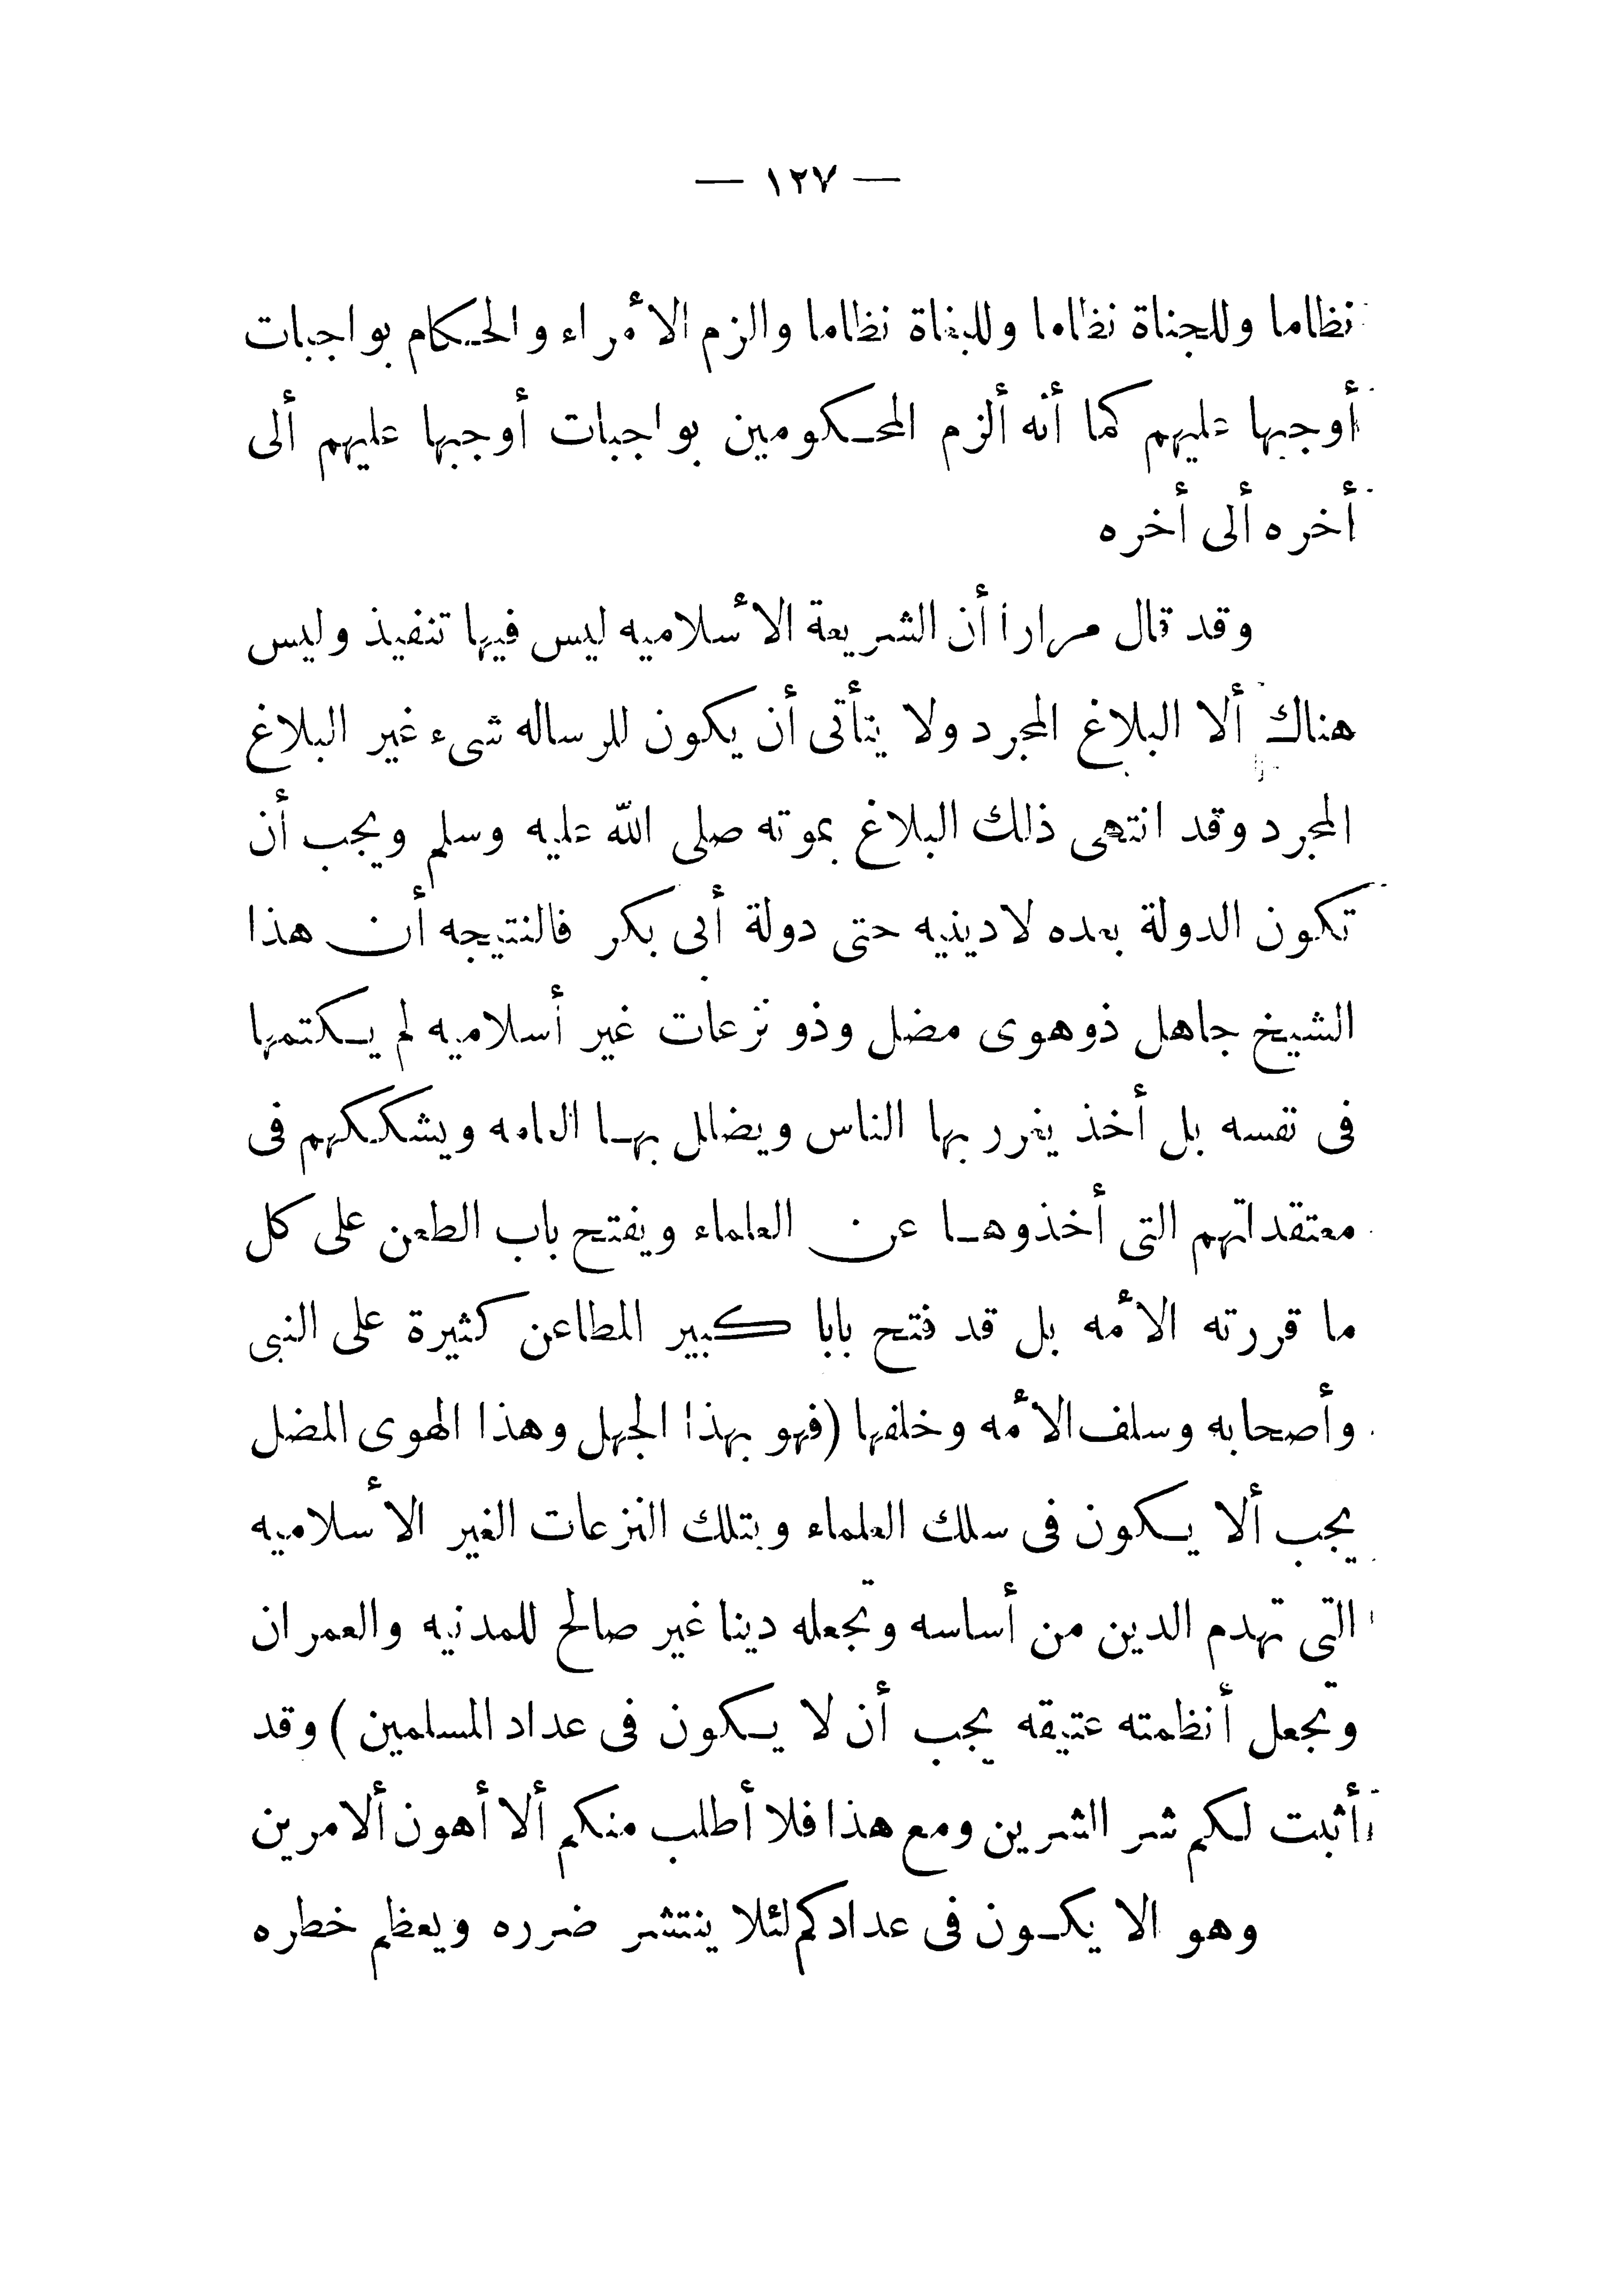 — ١٢٧ —
نظاما وللجناة نظاما وللبغاة نظاما والزم الأمراء والحكام بواجبات
أوجبها عليهم كما أنه ألزم المحكومين بواجبات أوجبها عليهم ألى
أخره ألى أخره
وقد قال مرارا أن الشريعة الأسلاميه ليس فيها تنفيذ وليس
هناك ألا البلاغ المجرد ولا يتأتى أن يكون للرساله شىء غير البلاغ
المجرد وقد انتهى ذلك البلاغ بموته صلى الله عليه وسلم ويجب أن
تكون الدولة بعده لادينيه حتى دولة أبى بكر فالنتيجه أن هذا
الشيخ جاهل ذوهوى مضل وذو نزعات غير أسلاميه لم يكتمها
فى نفسه بل أخذ يغرر بها الناس ويضلل بها العامه ويشككهم فى
معتقداتهم التى أخذوها عن العلماء ويفتح باب الطعن على كل
ما قررته الأمه بل قد فتح بابا كبير المطاعن كثيرة على النبى
وأصحابه وسلف الأمه وخلفها (فهو بهذا الجهل وهذا الهوى المضل
يجب ألا يكون فى سلك العلماء وبتلك النزعات الغير الأسلاميه
التى تهدم الدين من أساسه وتجعله دينا غير صالح للمدنيه والعمران
وتجعل أنظمته عتيقه يجب أن لا يكون فى عداد المسلمين) وقد
أثبت لكم شر الشرين ومع هذا فلا أطلب منكم ألا أهون ألامرين
وهو الا يكون فى عدادكم لئلا ينتشر ضرره ويعظم خطره